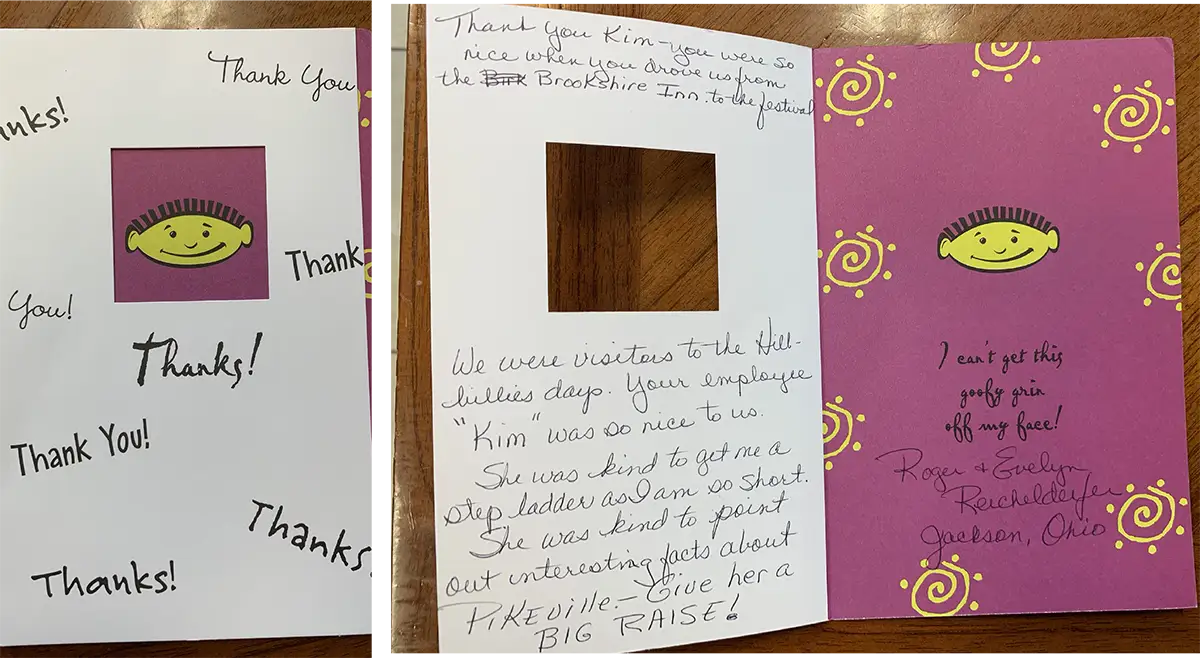 Thank You
anks!
Thank
You!
Thanks!
Thank You!
Thanks
Thanks!
Thank You Kim - you were so
nice when you drove us from
the Brookshire Inn. to the festival
We were visitors to the Hill-
billies days. Your employee
"Kim" was so nice to us.
She was kind to get me a
step ladder as I am so short.
She was kind to point
out interesting facts about
PiKEville. - Give her a
BIG RAISE!
I can't get this
goofy grin
off my face!
Roger & Evelyn
Reichelderfer
Jackson, Ohio